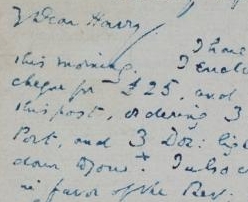 Dear Harry
I have
this morning. I enclo
cheque for £25, and
this post, ordering 3
Port, and 3 Doz: lig
dour I also e
in favor of the Rev.